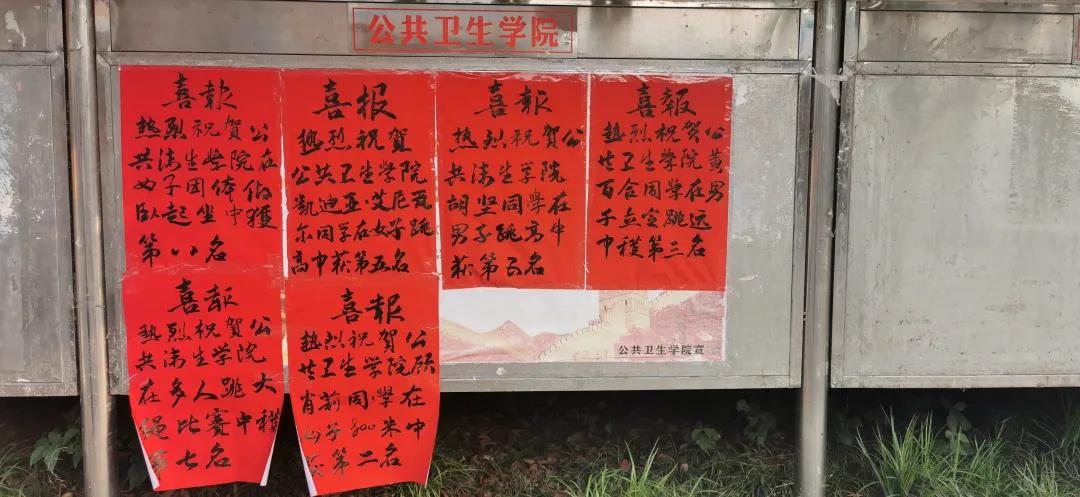 公共卫生学院
喜報
热烈祝賀公
共衛生學院在
女子团体仰
卧起坐中獲
第八名
喜报
热烈祝賀
公共卫生学院
凯迪亚·艾尼瓦
尔同学在女子跳
高中获第五名
喜報
热烈祝贺公
共衛生学院
胡坚同學在
男子跳高中
获第五名
喜報
热烈祝賀公
共卫生学院黄
百合同学在男
子立定跳远
中獲第二名
喜報
热烈祝賀公
共衛生学院
在多人跳大
绳比賽中獲
第七名
喜报
热烈祝賀公
共卫生学院顾
肖莉同學在
女子800米中
获第二名
公共卫生学院宣